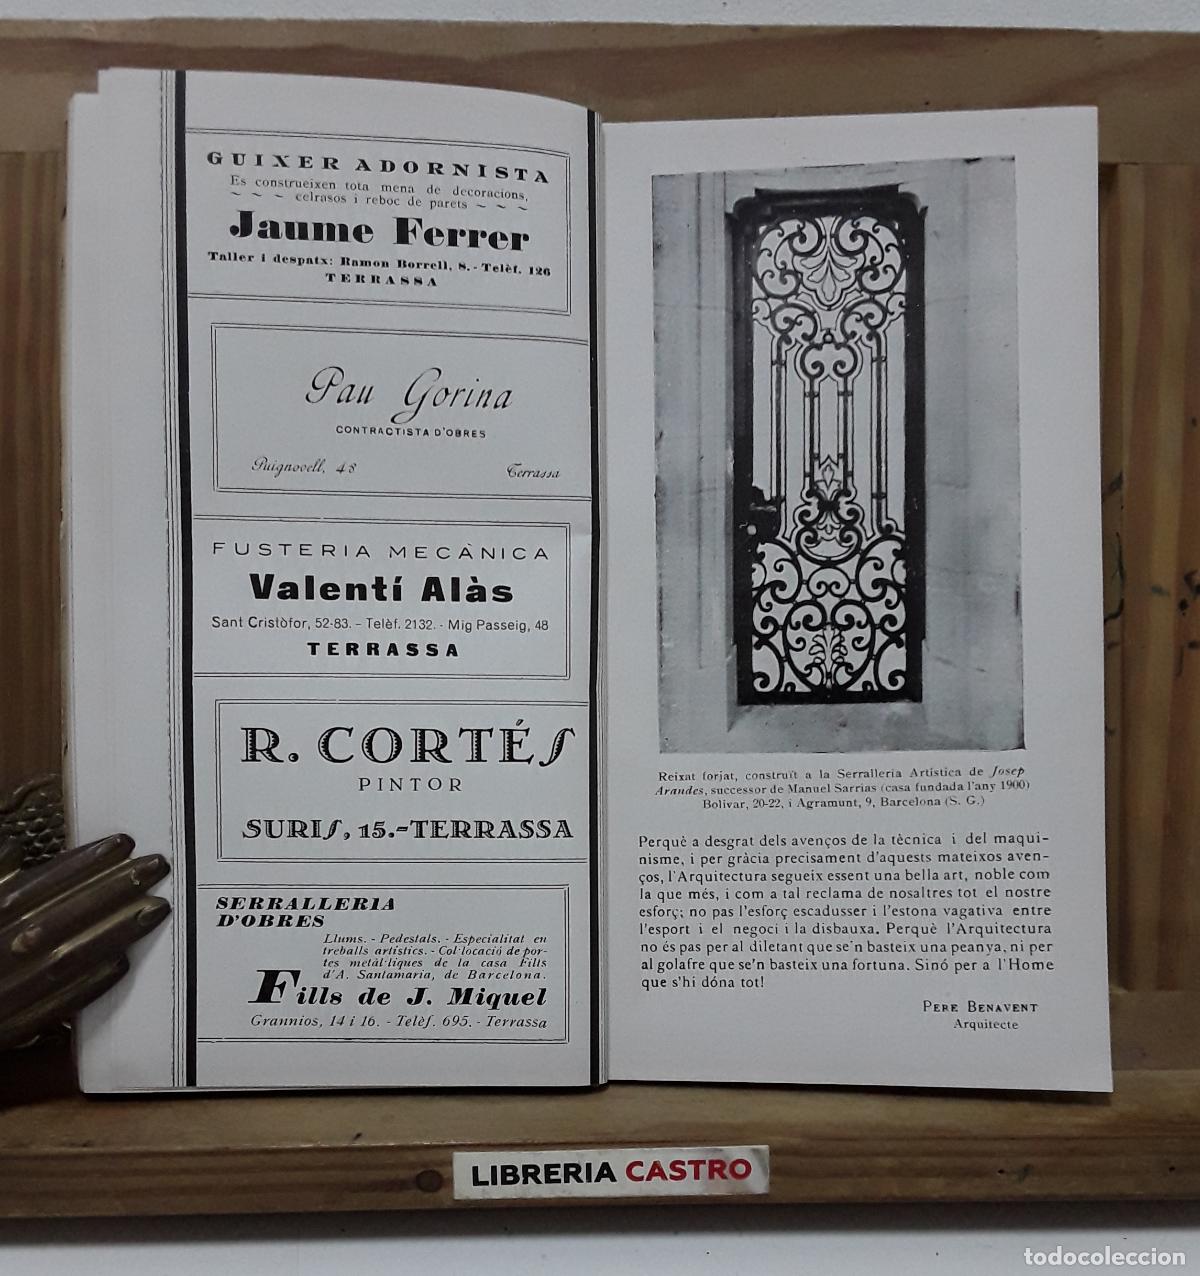 GUIXER ADORNISTA
Es construeixen tota mena de decoracions,
~ ~ ~ celrasos i reboc de parets ~ ~ ~
Jaume Ferrer
Taller i despatx: Ramon Borrell, 8. - Telèf. 126
TERRASSA
Pau Gorina
CONTRACTISTA D'OBRES
Puignovell, 48 Terrassa
FUSTERIA MECÀNICA
Valentí Alàs
Sant Cristòfor, 52-83. - Telèf. 2132. - Mig Passeig, 48
TERRASSA
R. CORTÉS
PINTOR
SURIS, 15.-TERRASSA
SERRALLERIA
D'OBRES
Llums. - Pedestals. - Especialitat en
treballs artístics. - Col·locació de por-
tes metàl·liques de la casa Fills
d'A. Santamaria, de Barcelona.
Fills de J. Miquel
Grannios, 14 i 16. - Telèf. 695. - Terrassa
Reixat forjat, construït a la Serralleria Artística de Josep
Arandes, successor de Manuel Sarrias (casa fundada l'any 1900)
Bolivar, 20-22, i Agramunt, 9, Barcelona (S. G.)
Perquè a desgrat dels avenços de la tècnica i del maqui-
nisme, i per gràcia precisament d'aquests mateixos aven-
ços, l'Arquitectura segueix essent una bella art, noble com
la que més, i com a tal reclama de nosaltres tot el nostre
esforç; no pas l'esforç escadusser i l'estona vagativa entre
l'esport i el negoci i la disbauxa. Perquè l'Arquitectura
no és pas per al diletant que se'n basteix una peanya, ni per
al golafre que se'n basteix una fortuna. Sinó per a l'Home
que s'hi dóna tot!
PERE BENAVENT
Arquitecte
LIBRERIA CASTRO
todocoleccion